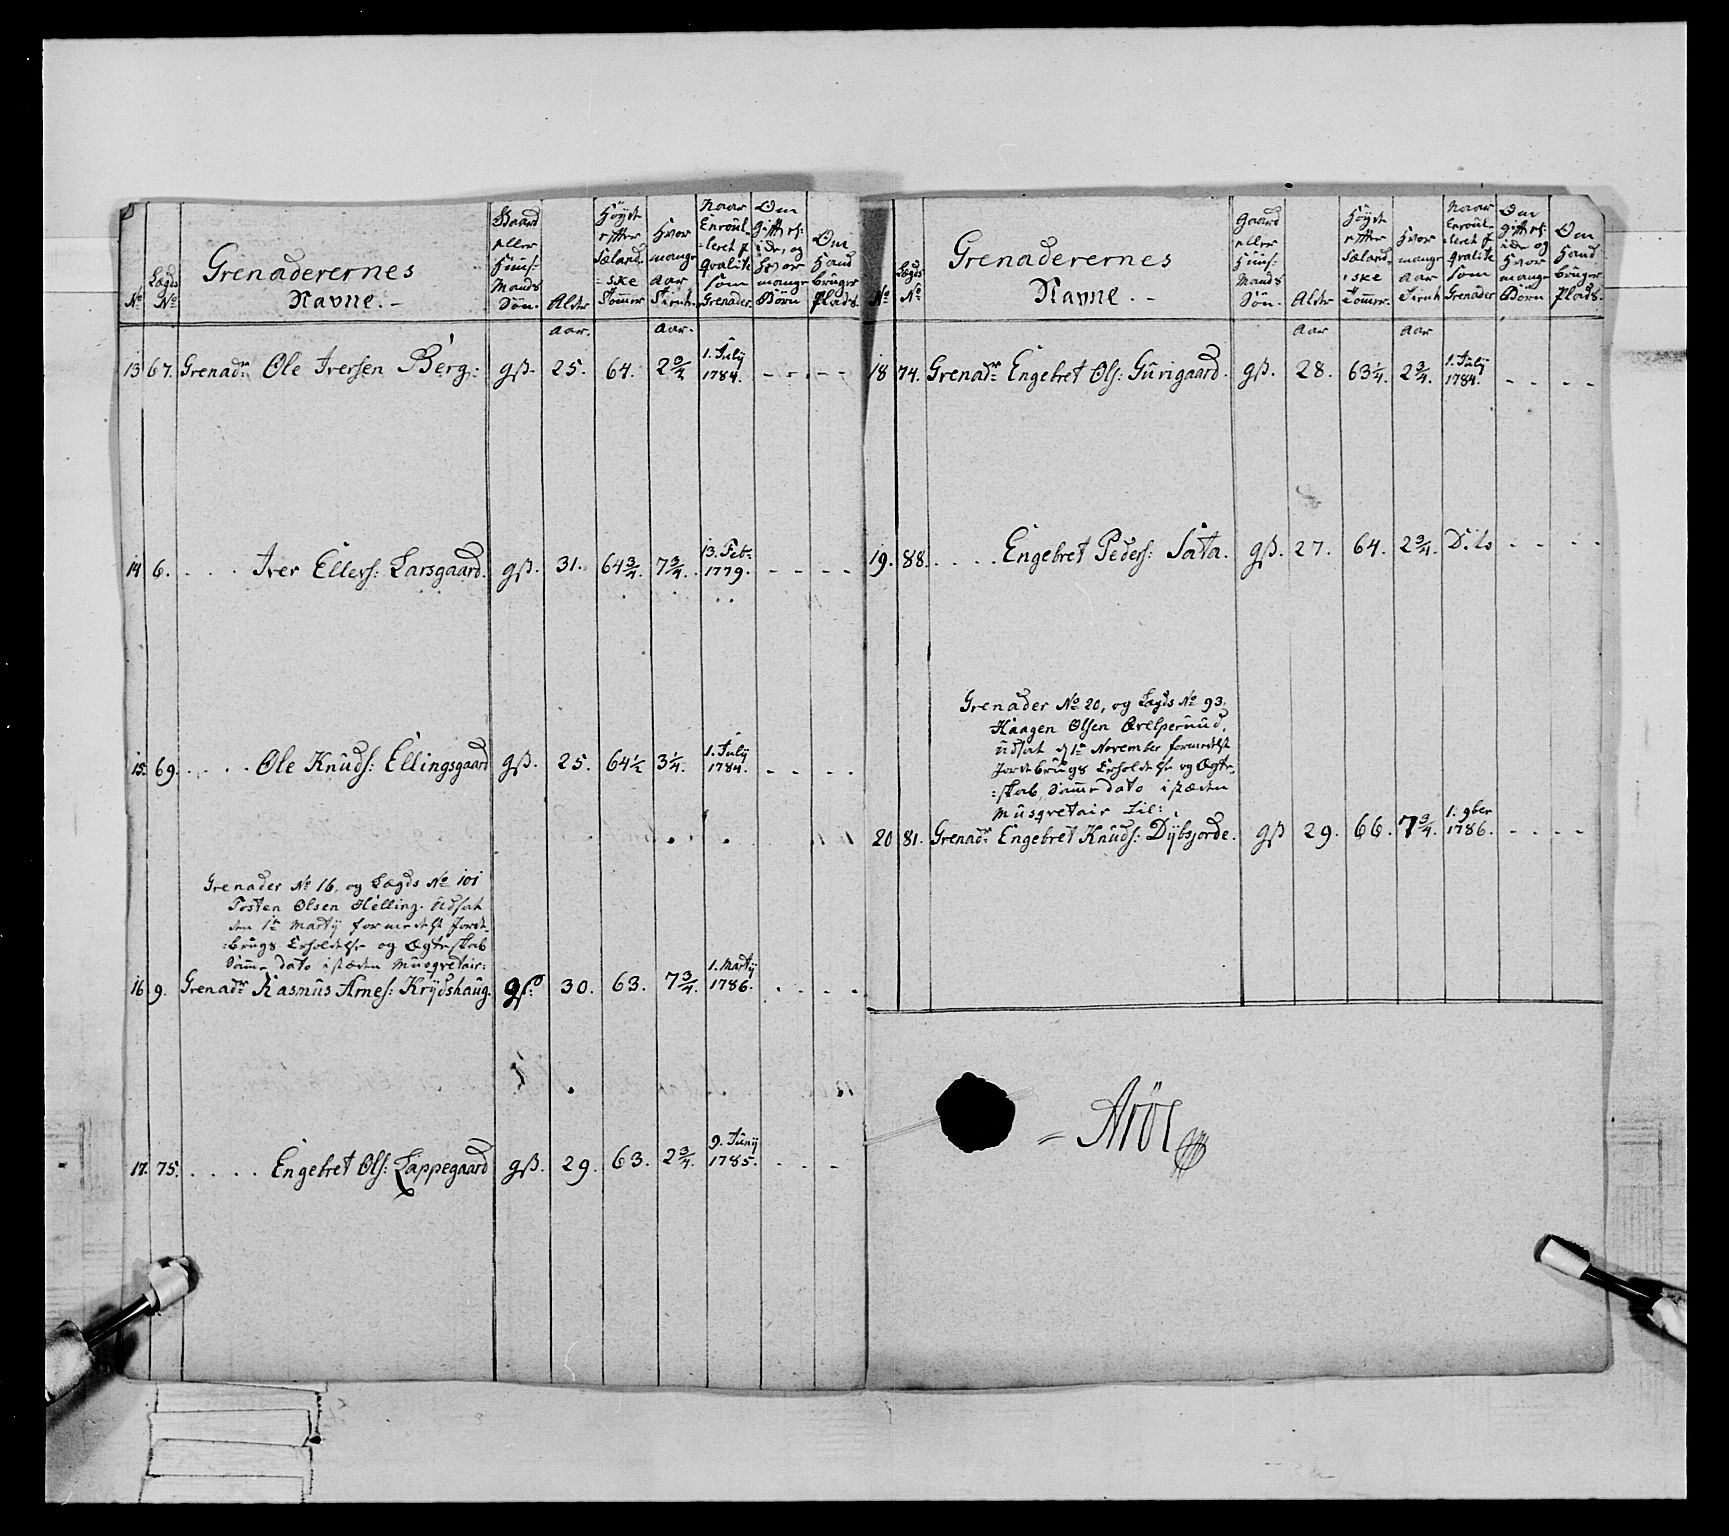 No
Lægds No
Grenaderernes
Navne.-
Gaard
eller
Huus-
Mands
Søn.
Alder
Høyde
efter
Sælands
ske
Tomer
Hvor
mange
Aar
Tient.
Naar
Enroul-
leret p
qvalite
som
Grenader.
Om
gift el:
ide, og
hvor
mange
Børn
Om
Hand
bruger
Plads.
Aar.
Aar.
13 67. Grenadr Ole Iversen Berg: gß. 25. 64. 2¾ 1. July 1784. - - - -
14 6. . . . . Iver Ellers: Larsgaard. gß. 31. 64¾. 7¾. 13. Febr. 1779. - - - -
15. 69. . . . . Ole Knuds: Ellingsgaard gß. 25. 64½ 3¼. 1. July 1784. - - - -
Grenader No 16, og Lægds No 101
Tosten Olsen Helling. Udsat
den 1te Martÿ formedelst Jorde-
=brugs Erholdelse og Ægteskab
Samme dato isteden Musqvetair:
16 9. Grenadr Rasmus Arnes: Krÿdshaug. gß. 30. 63. 7¾. 1. Martÿ 1786. . - - -
17. 75. . . . . Engebret Ols: Lappegaard gß. 29. 63. 2¾. 9. Junÿ 1785. . - -
No
Lægds No
Grenaderernes
Navne.-
Gaard
eller
Huus-
Mands
Søn.
Alder
Høyde
efter
Sæland,
ske
Tomer.
Hvor
mange
Aar
Tient
Naar
Enroul-
leret p
qvalite
som
Grenader
Om
gift el:
ide og
hvor
mange
Børn
Om
Hand
bruger
Plads.
Aar
Aar
18 74. Grenadr Engebret Ols: Gurigaard. gß. 28. 63¼. 2¾. 1. July 1784. - - - -
19. 88. . . . . Engebret Peders: Sata. gß. 27. 64. 2¾. Dito - - - -
Grenader No 20, og Lægds No 93.
Haagen Olsen
Udsat d 1te November formedelst
Jordebrugs Erholdelse og Ægte-
=skab, Samme dato isteden
Musqvetair til:
20 81. Grenadr Engebret Knuds: Dÿbsjorde. gß 29. 66. 7¾. 1. 9ber 1786. - - - -